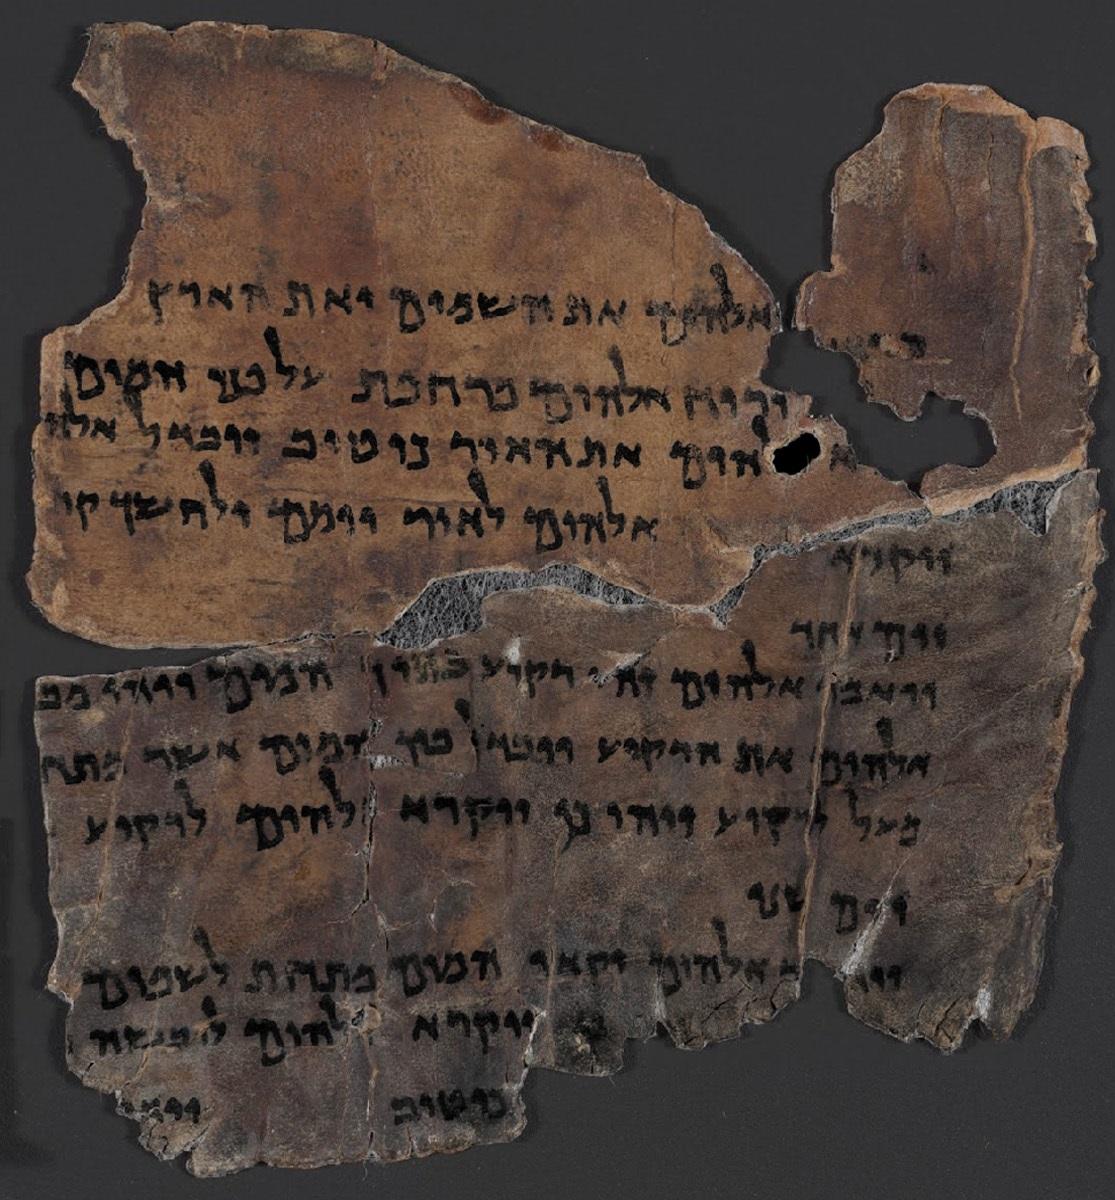 אלהים את השמים ואת הארץ
ורוח אלהים מרחפת על פני המים
אלהים את האור כי טוב ויבדל אלה
ויקרא אלהים לאור יומם ולחשך קר
יום אחד
ויאמר אלהים יהי רקיע בתוך המים ויהי מב
אלהים את הרקיע ויבדל בין המים אשר מתח
מעל לרקיע ויהי כן ויקרא אלהים לרקיע
יום שני
אלהים יקוו המים מתחת לשמים
ויקרא אלהים ליבשה
כי טוב